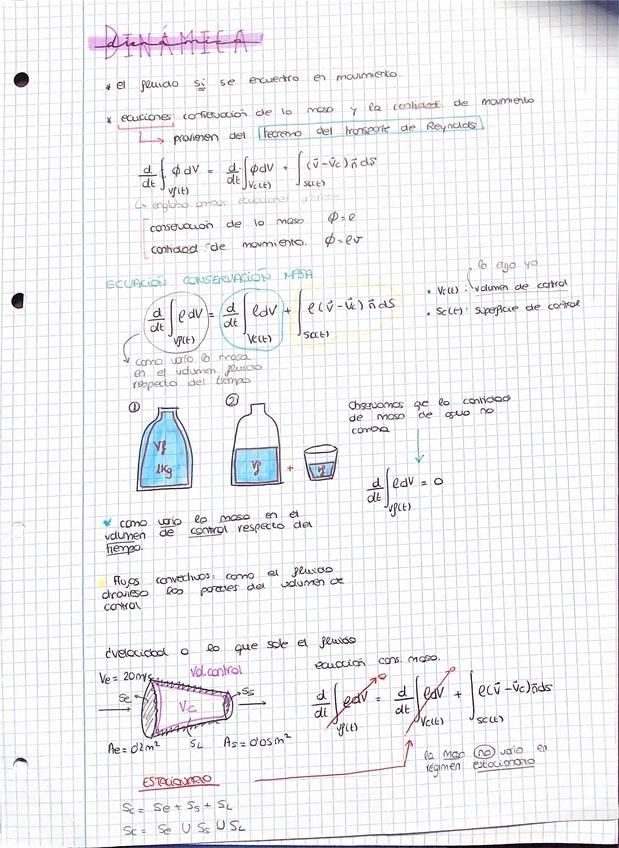 DINÁMICA
dinámica
* el fluido sí se encuentra en movimiento.
* ecuaciones conservación de la masa y la cantidad de movimiento
↳ provienen del teorema del transporte de Reynolds
d/dt ∫Vf(t) ϕ dV = d/dt ∫Vc(t) ϕ dV + ∫Sc(t) (v⃗ - v⃗c) n⃗ ds
↳ engloba ambas ecuaciones
conservación de la masa ϕ = ρ
cantidad de movimiento. ϕ = ρv
ECUACIÓN CONSERVACIÓN MASA
lo elijo yo
d/dt ∫Vf(t) ρ dV = d/dt ∫Vc(t) ρ dV + ∫Sc(t) ρ (v⃗ - v⃗c) n⃗ ds
• Vc(t): volumen de control
• Sc(t): superficie de control
como varía la masa
en el volumen fluido
respecto del tiempo
① ②
Vf
1Kg
Vf + Vf
Observamos que la cantidad
de masa de agua no
cambia
d/dt ∫Vf(t) ρ dV = 0
* como varía la masa en el
volumen de control respecto del
tiempo.
Flujos convectivos: como el fluido
atraviesa las paredes del volumen de
control
¿velocidad a la que sale el fluido
ecuación cons. masa.
Ve = 20m/s
Vol. control
Se Vc Ss
Ae = 0'2m² SL As = 0'05m²
d/dt ∫Vf(t) ρ dV = d/dt ∫Vc(t) ρ dV + ∫Sc(t) ρ (v⃗ - v⃗c) n⃗ ds
0 0
la masa no varía en
régimen estacionario
ESTACIONARIO
Sc = Se + Ss + SL
Sc = Se ∪ Ss ∪ SL